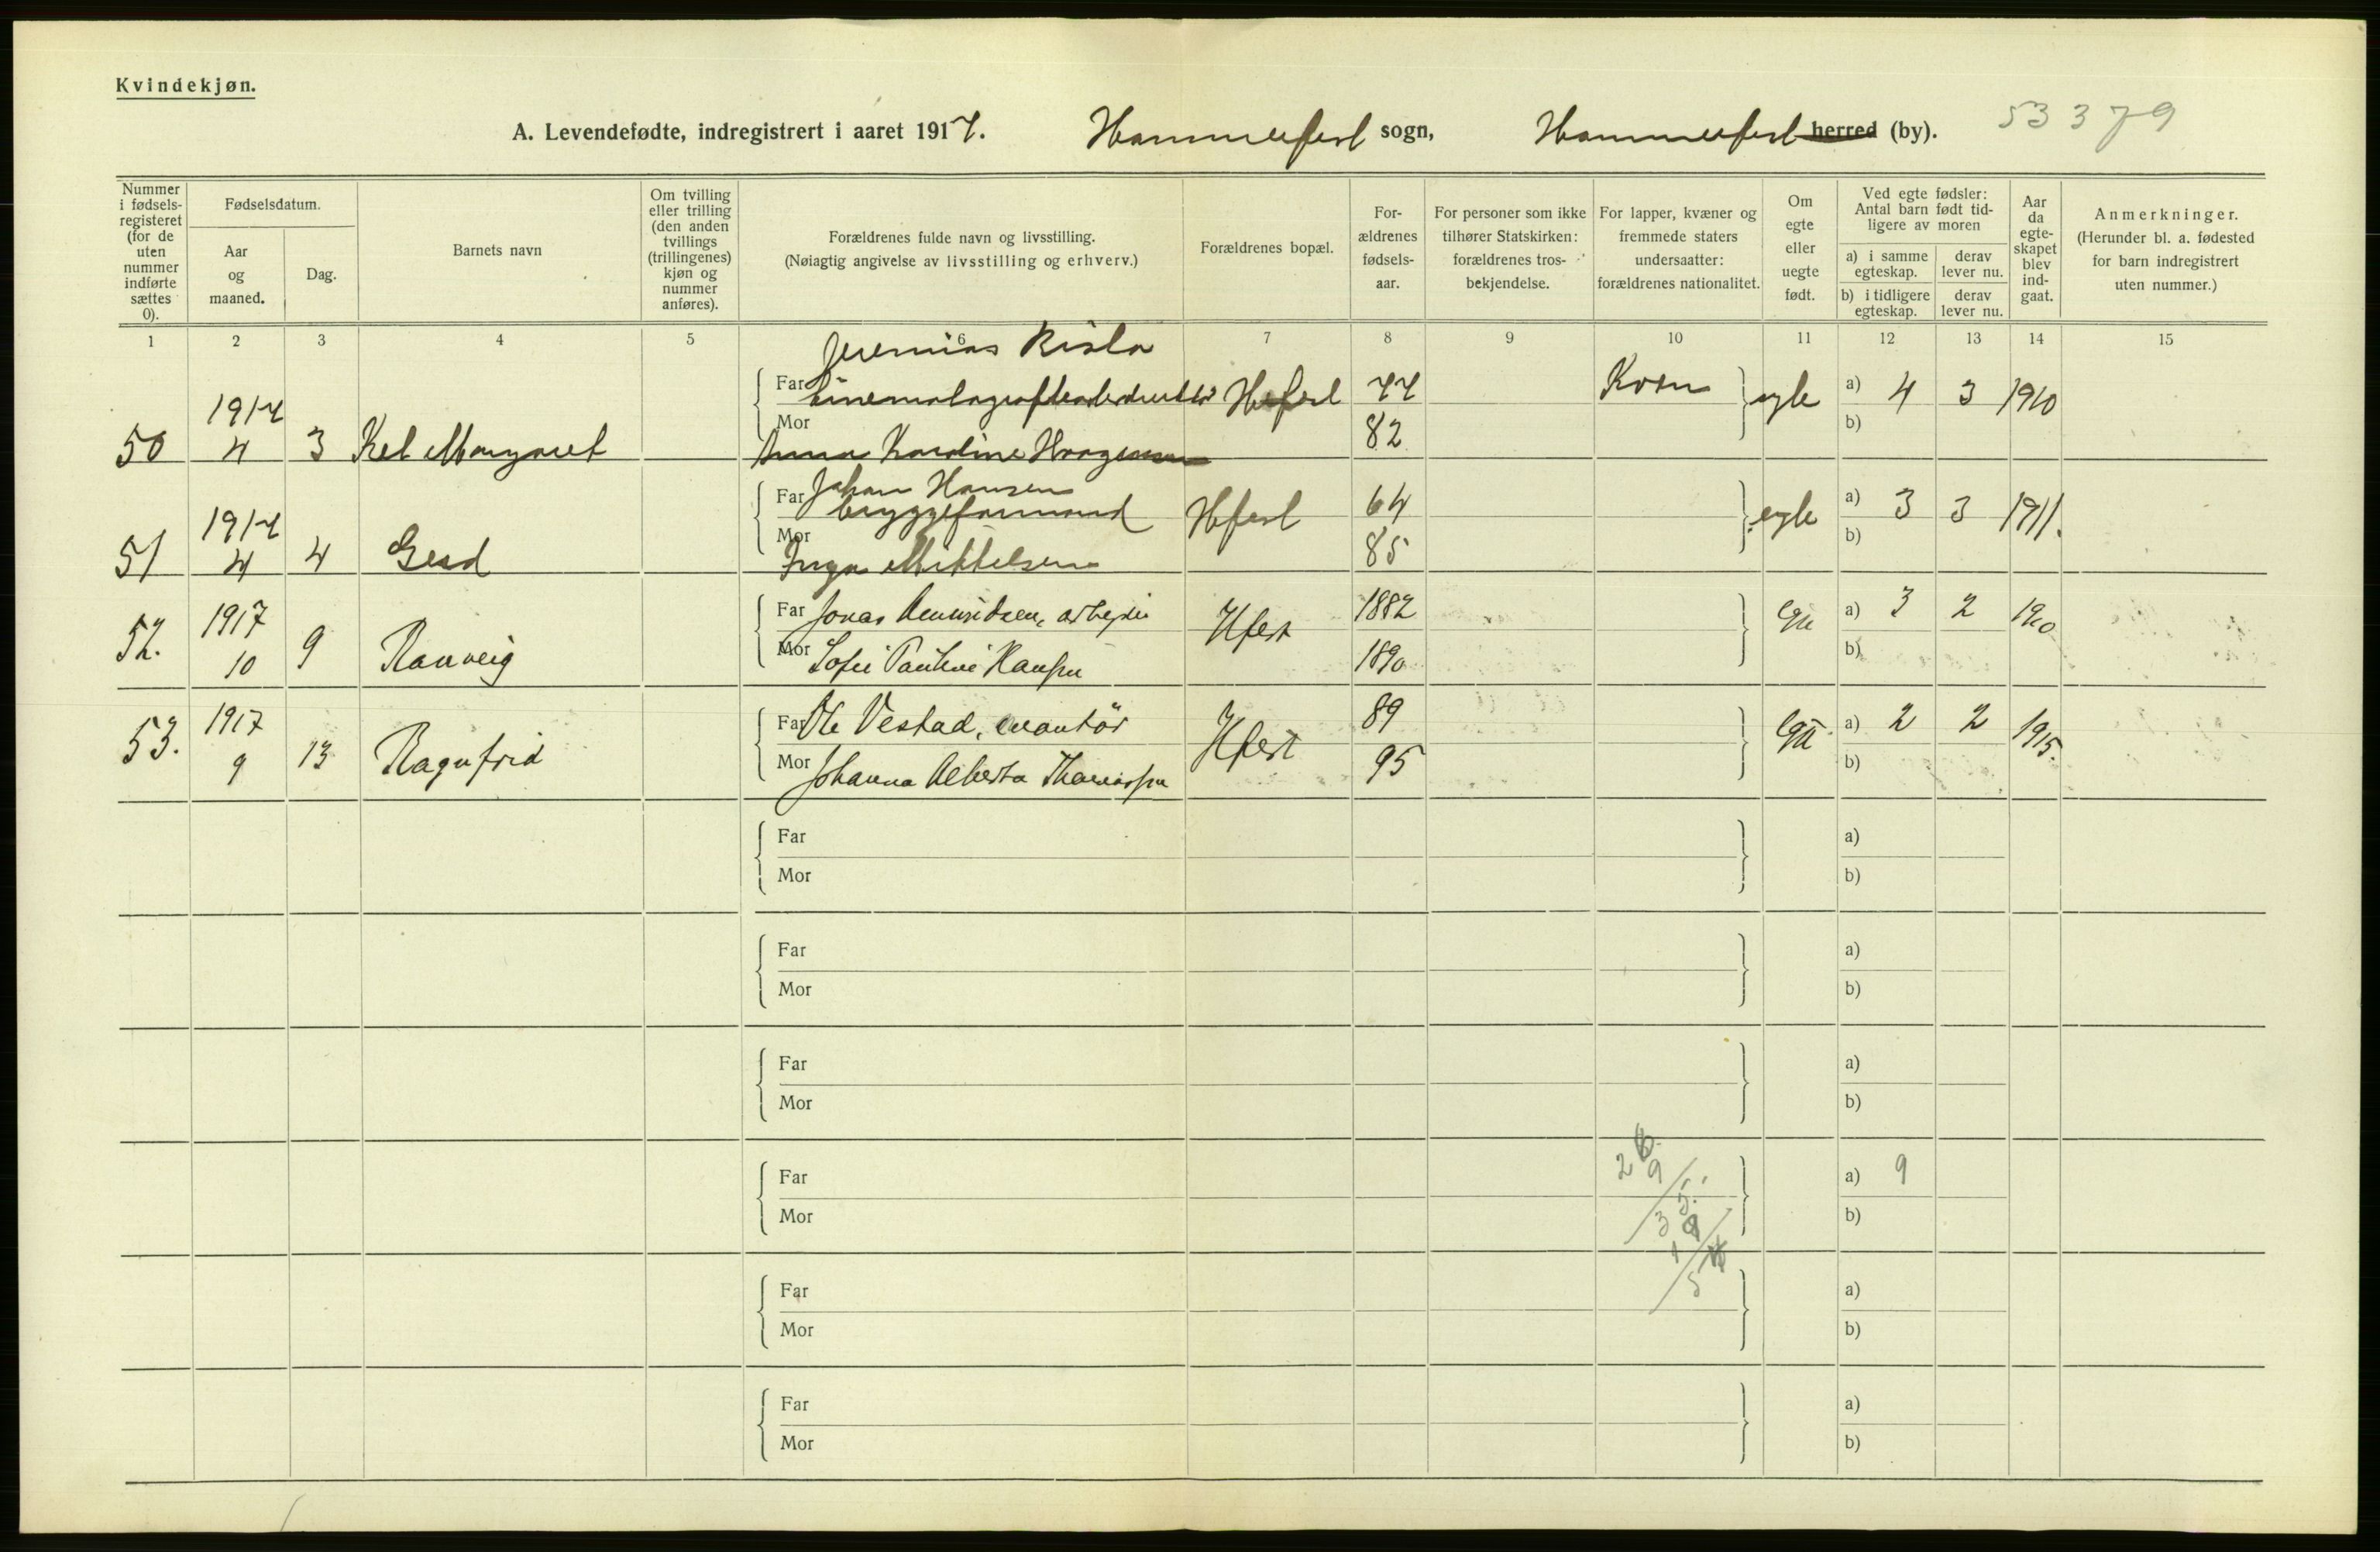 Kvindekjøn.
A. Levendefødte, indregistrert i aaret 1917. Hammerfest sogn, Hammerfest herred (by). 53379
Nummer i fødsels-registeret (for de uten nummer indførte sættes 0).
Fødselsdatum.
Aar og maaned.
Dag.
Barnets navn
Om tvilling eller trilling (den anden tvillings (trillingenes) kjøn og nummer anføres).
Forældrenes fulde navn og livsstilling. (Nøiagtig angivelse av livsstilling og erhverv.)
Forældrenes bopæl.
For-ældrenes fødsels-aar.
For personer som ikke tilhører Statskirken: forældrenes tros-bekjendelse.
For lapper, kvæner og fremmede staters undersaatter: forældrenes nationalitet.
Om egte eller uegte født.
Ved egte fødsler: Antal barn født tid-ligere av moren
a) i samme egteskap.
derav lever nu.
b) i tidligere egteskap.
derav lever nu.
Aar da egte-skapet blev ind-gaat.
Anmerkninger. (Herunder bl. a. fødested for barn indregistrert uten nummer.)
1 2 3 4 5 6 7 8 9 10 11 12 13 14 15
Jeremias
Far Hfest 77 Kvæn egte a) 4 3 1910
Mor 82 b)
50 1917 4 3 Margaret Anna Karoline Haagensen
Far Johan Hansen
bryggeformand Hfest 64 egte a) 3 3 1911.
Mor 85 b)
51 1917 4 4 Gerd Inga Mikkelsen
52. 1917 10 9 Ranveig
Far Jonas arbeider Hfest 1882 Egte a) 3 2 1910
Mor Sofie Pauline Hansen 1890 b)
53. 1917 9 13 Ragnfrid
Far Ole Vestad, Hfest 89 Egte a) 2 2 1915.
Mor Johanna Alberta 95 b)
Far a)
Mor b)
Far a)
Mor b)
Far a)
Mor b)
Far a) 9
Mor b)
Far a)
Mor b)
Far a)
Mor b)